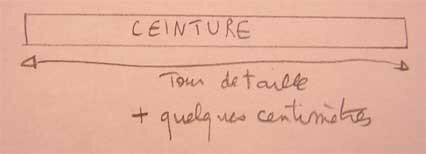 CEINTURE
Tour de taille
+ quelques centimètres